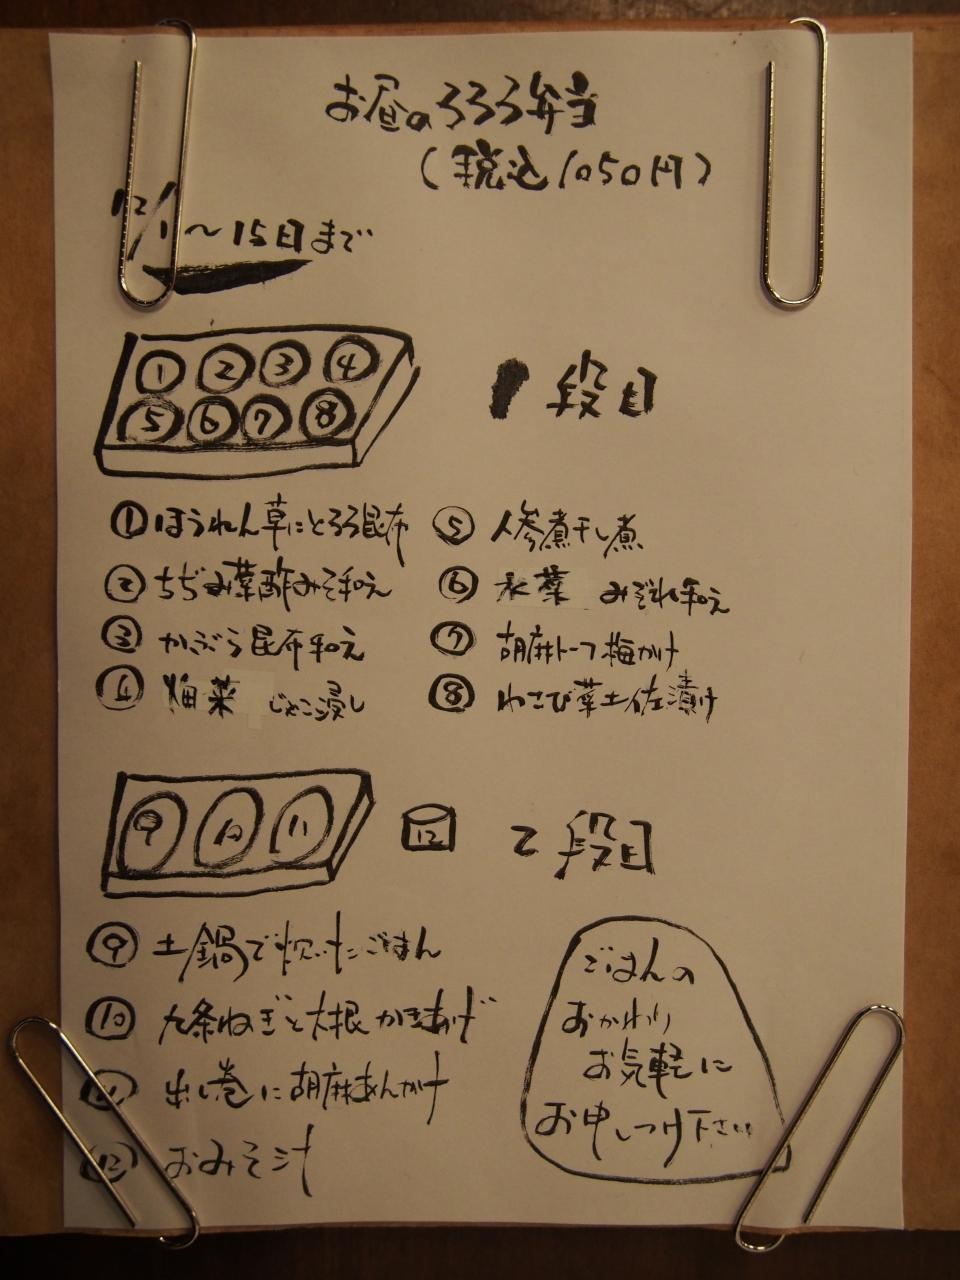 お昼のろろろ弁当
(税込1050円)
12/1〜15日まで
① ② ③ ④
⑤ ⑥ ⑦ ⑧
1段目
①ほうれん草にとろろ昆布
②ちぢみ菜酢みそ和え
③かぶら昆布和え
④畑菜 じゃこ浸し
⑤人参煮干し煮
⑥水菜 みぞれ和え
⑦胡麻トーフ梅かけ
⑧わさび菜土佐漬け
9 10 11
12
2段目
⑨土鍋で炊いたごはん
⑩九条ねぎと大根かきあげ
⑪出し巻に胡麻あんかけ
⑫おみそ汁
ごはんの
おかわり
お気軽に
お申しつけ下さい